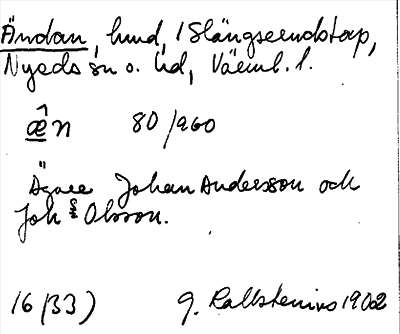 Ändan, lund, i Slängserudstorp,
Nyeds sn o. hd, Värml. l.
æ̂n 80/960
Ägare Johan Andersson och
Joh⁸ Olsson.
16 (33) G. Kallstenius 1902